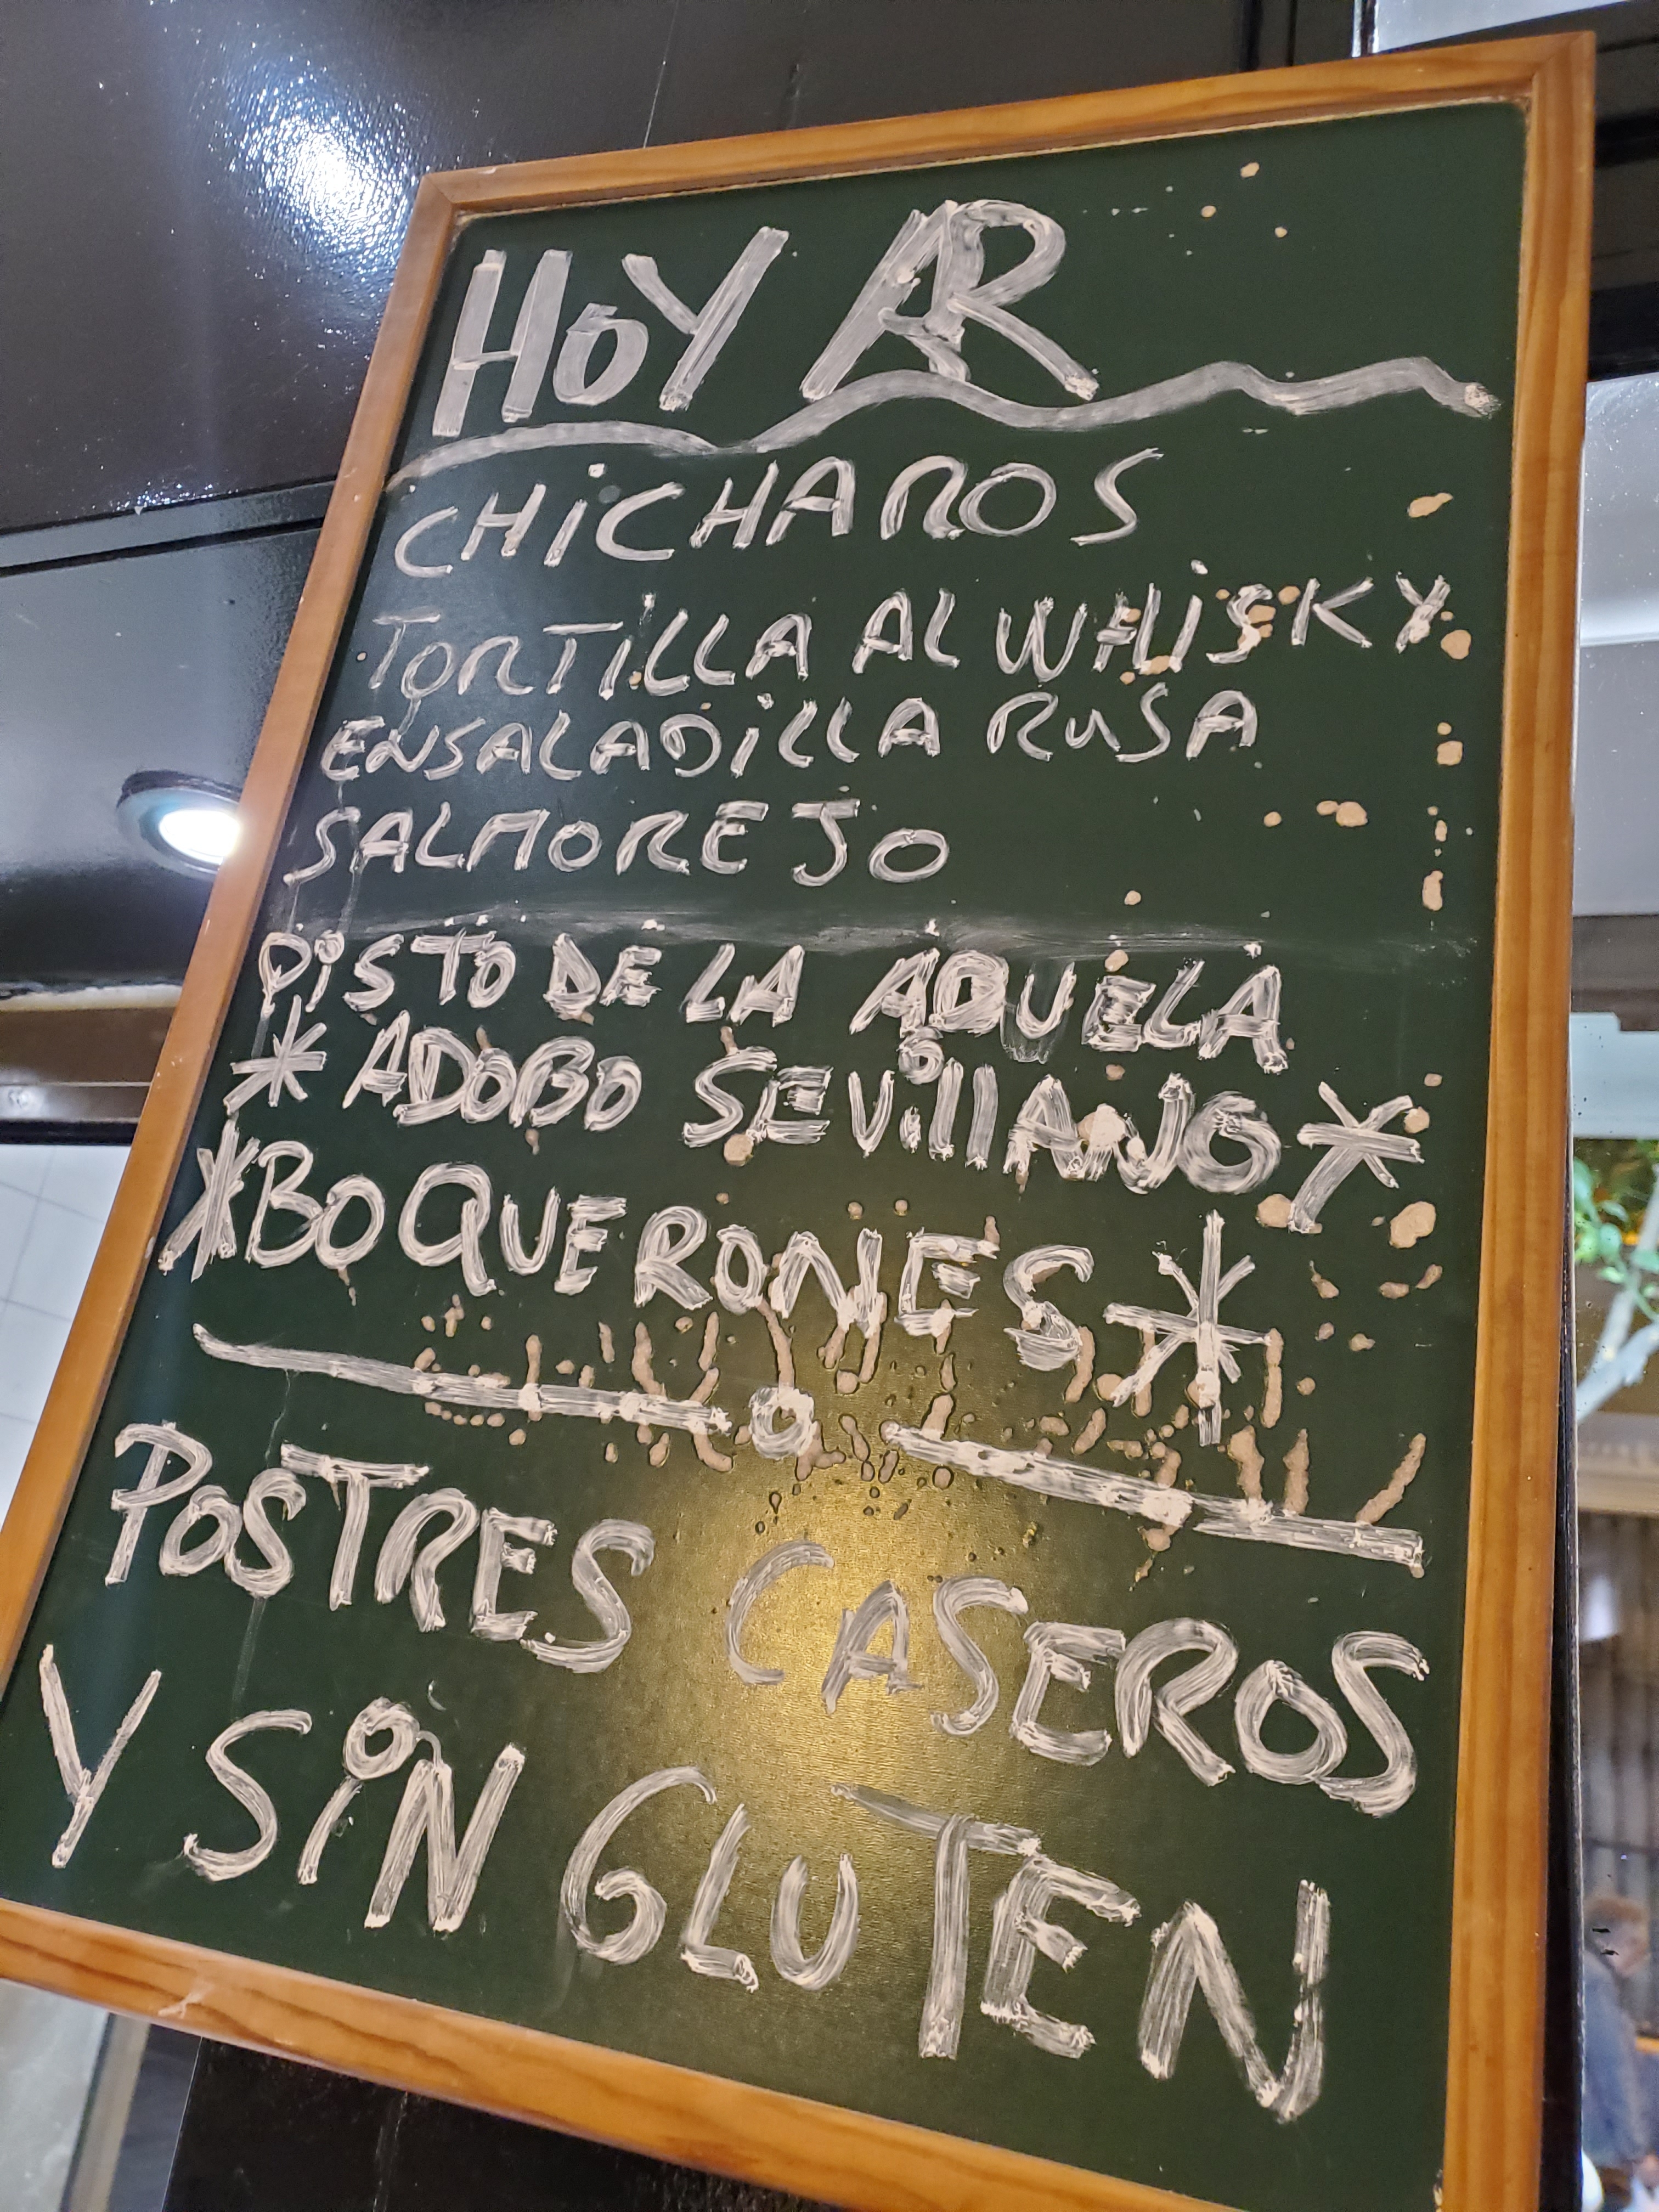 HOY AR
CHICHAROS
TORTILLA AL WHISKY
ENSALADILLA RUSA
SALMOREJO
PISTO DE LA ABUELA
* ADOBO SEVILLANO *
* BOQUERONES *
POSTRES CASEROS
Y SIN GLUTEN